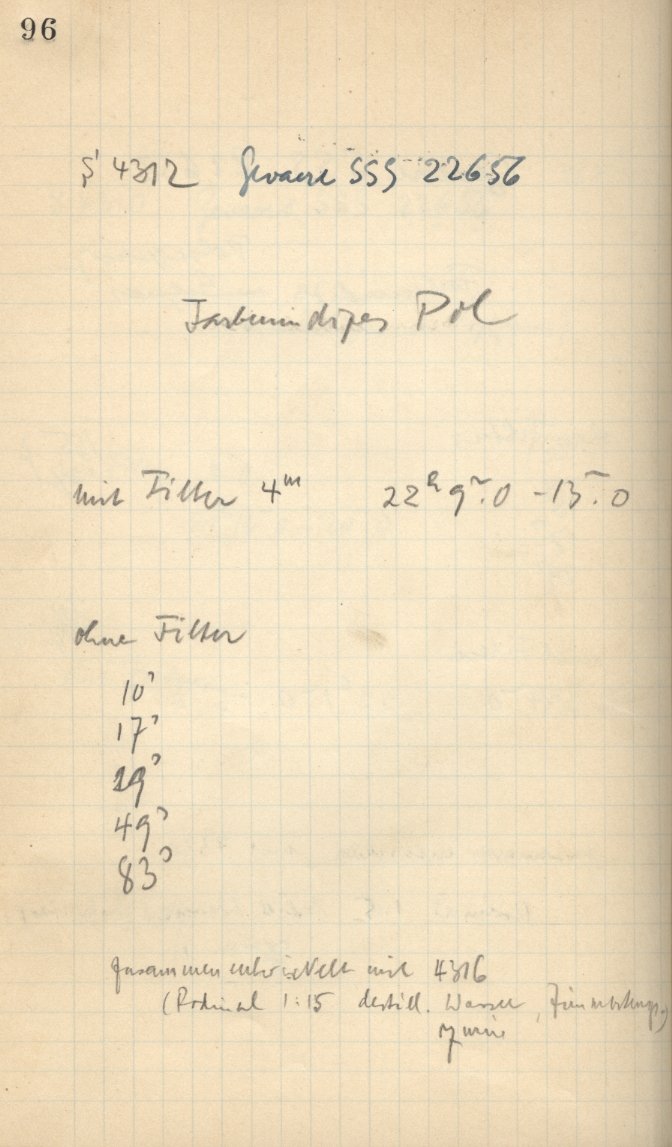 96
S 4312 Gevaert SSS 22656
Farbenindizes Pol
mit Filter 4ᵐ 22ʰ 9ᵐ.0 - 13ᵐ.0
ohne Filter
10ˢ
17ˢ
29ˢ
49ˢ
83ˢ
Zusammen entwickelt mit 4316
(Rodinal 1:15 destill. Wasser,
7 min